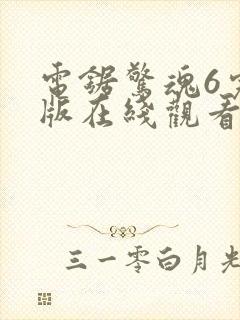 電鋸驚魂6完
版在綫觀看
三一零白月光